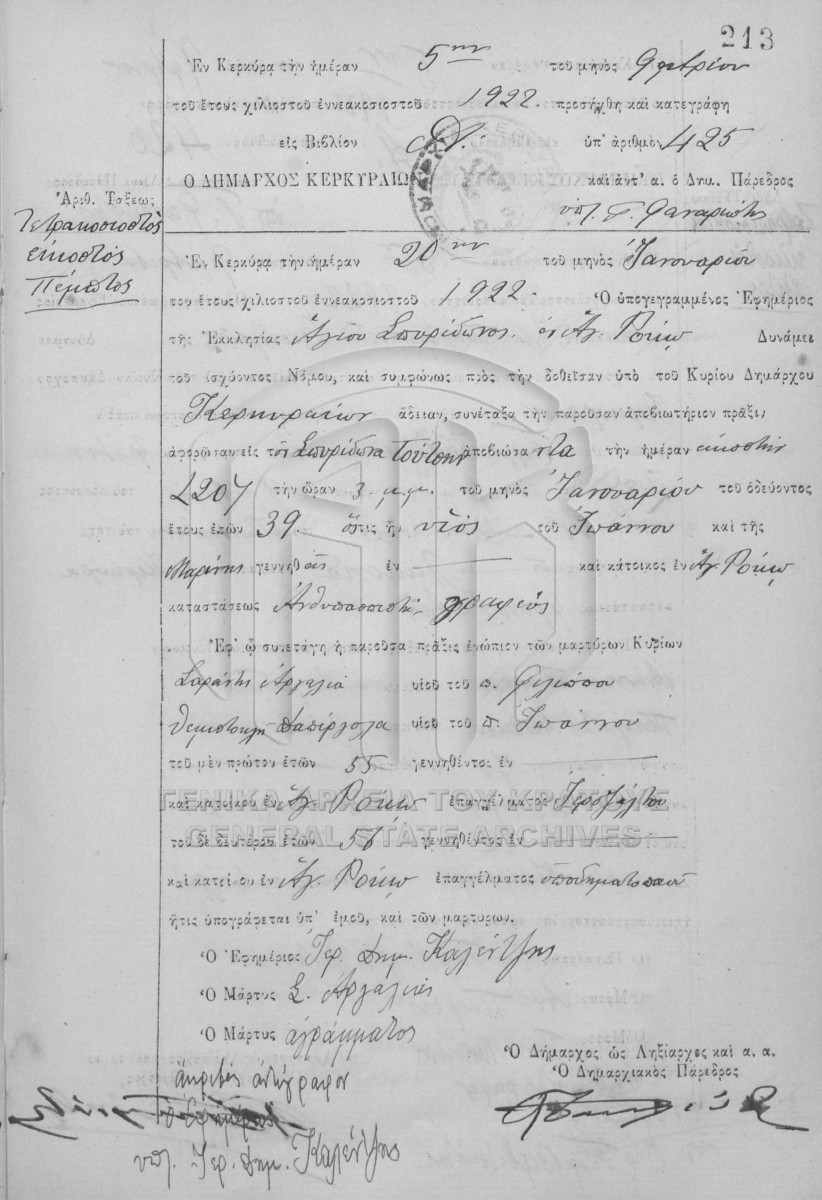 213
Ἐν Κερκύρᾳ τὴν ἡμέραν 5ην τοῦ μηνὸς
τοῦ ἔτους χιλιοστοῦ ἐννεακοσιοστοῦ 1922. προσήχθη καὶ κατεγράφη
εἰς Βιβλίον ὑπ' ἀριθμὸν 425
Ὁ ΔΗΜΑΡΧΟΣ ΚΕΡΚΥΡΑΙΩΝ καὶ ἀντ' α. ὁ Δημ. Πάρεδρος
Ἀριθ. Τάξεως
Τετρακοσιοστὸς
εἰκοστὸς
Πέμπτος
Ἐν Κερκύρᾳ τὴν ἡμέραν 20ην τοῦ μηνὸς Ἰανουαρίου
τοῦ ἔτους χιλιοστοῦ ἐννεακοσιοστοῦ 1922. Ὁ ὑπογεγραμμένος Ἐφημέριος
τῆς Ἐκκλησίας Ἁγίου Σπυρίδωνος ἐν Ἁγ. Ρόκῳ Δυνάμει
τοῦ ἰσχύοντος Νόμου, καὶ συμφώνως πρὸς τὴν δοθεῖσαν ὑπὸ τοῦ Κυρίου Δημάρχου
Κερκυραίων ἄδειαν, συνέταξα τὴν παροῦσαν ἀποβιωτήριον πρᾶξιν,
ἀφορῶσαν εἰς τὸν Σπυρίδωνα ἀποβιώσαντα τὴν ἡμέραν εἰκοστὴν
(20) τὴν ὥραν 3 μ.μ. τοῦ μηνὸς Ἰανουαρίου τοῦ ὁδεύοντος
ἔτους ἐτῶν 39. ὅστις ἦν υἱὸς τοῦ Ἰωάννου καὶ τῆς
Μαρίνης γεννηθεὶς ἐν — καὶ κάτοικος ἐν Ἁγ. Ρόκῳ
καταστάσεως Ἀνθυπασπιστὴς γραφεὺς
Ἐφ' ᾧ συνετάγη ἡ παροῦσα πρᾶξις ἐνώπιον τῶν μαρτύρων Κυρίων
υἱοῦ τοῦ π. Φιλίππου
Θεμιστοκλῆ υἱοῦ τοῦ π. Ἰωάννου
τοῦ μὲν πρώτου ἐτῶν 55 γεννηθέντος ἐν —
καὶ κατοίκου ἐν Ἁγ. Ρόκῳ ἐπαγγέλματος Ἱεροψάλτου
ΓΕΝΙΚΑ ΑΡΧΕΙΑ ΤΟΥ ΚΡΑΤΟΥΣ
GENERAL STATE ARCHIVES
τοῦ δὲ δευτέρου ἐτῶν γεννηθέντος ἐν —
καὶ κατοίκου ἐν Ἁγ. Ρόκῳ ἐπαγγέλματος ὑποδηματοποιοῦ
ἥτις ὑπογράφεται ὑπ' ἐμοῦ, καὶ τῶν μαρτύρων.
Ὁ Ἐφημέριος Ἱερ. Δημ. Καλέντζης
Ὁ Μάρτυς Σ.
Ὁ Μάρτυς ἀγράμματος
Ὁ Δήμαρχος ὡς Ληξίαρχες καὶ α. α.
Ὁ Δημαρχιακὸς Πάρεδρος
ἀκριβὲς ἀντίγραφον
ὁ Ἐφημέριος
υπ. Ἱερ. Δημ. Καλέντζης